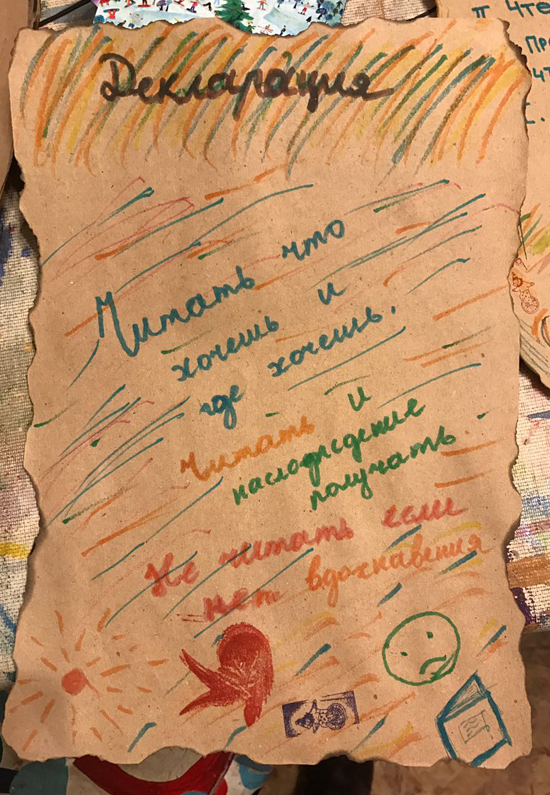 Декларация
Читать что
хочешь и
где хочешь.
Читать и
наслождение
получать.
Не читать если
нет вдохнавения
П Чте